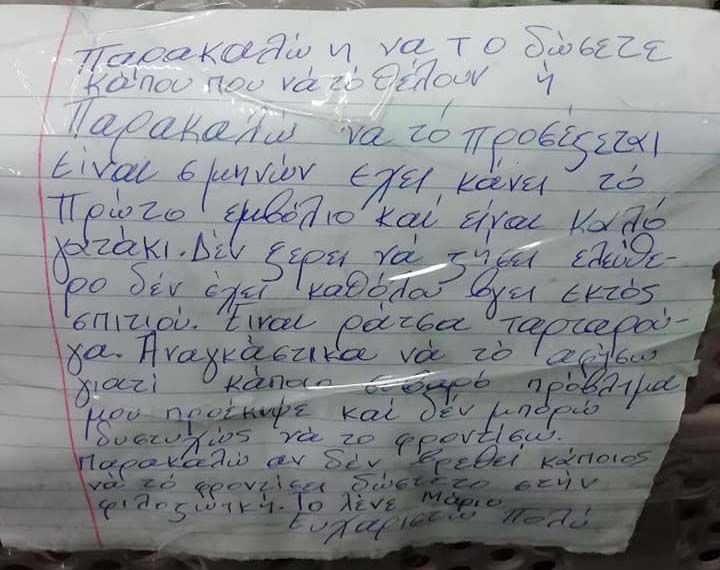 Παρακαλώ η να το δώσετε
κάπου που νά τό θέλουν ή
Παρακαλώ να τό προσέξεται
είναι 5 μηνών έχει κάνει τό
Πρώτο εμβόλιο και είναι καλό
γατάκι. Δέν ξερει νά ζήσει ελεύθε-
ρο δέν έχει καθόλου βγει εκτός
σπιτιού. Είναι ράτσα ταρταρού-
γα. Αναγκάστικα νά τό αφήσω
γιατί κάποιο σοβαρό πρόβλημα
μου προέκυψε και δέν μπορώ
δυστυχώς νά το φροντίσω.
Παρακαλώ αν δέν βρεθεί κάποιος
νά τό φροντίσει δώστε το στήν
φιλοζωική. Το λένε Μάριο
Ευχαριστώ Πολύ